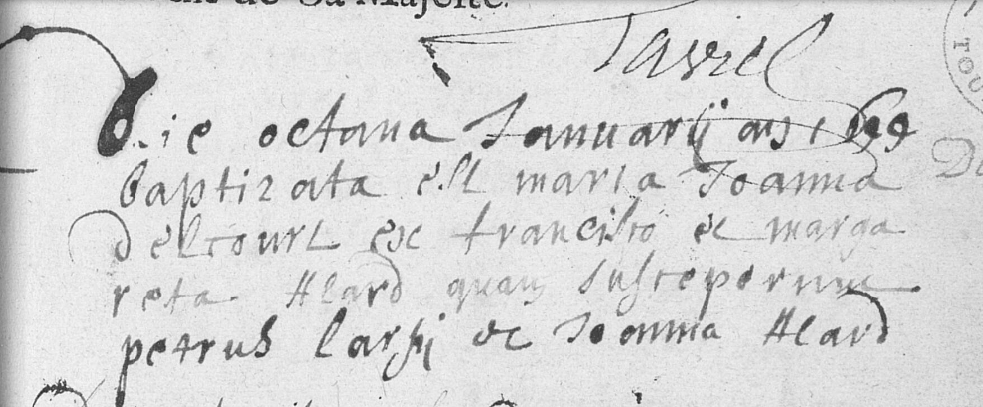 de Sa Majesté.
Tavrel
TOU
Die octaua Januarij
baptizata est maria Joanna
delcourt ex francisco et marga
reta Alard quam susceperunt
petrus larsij et Joanna Alard